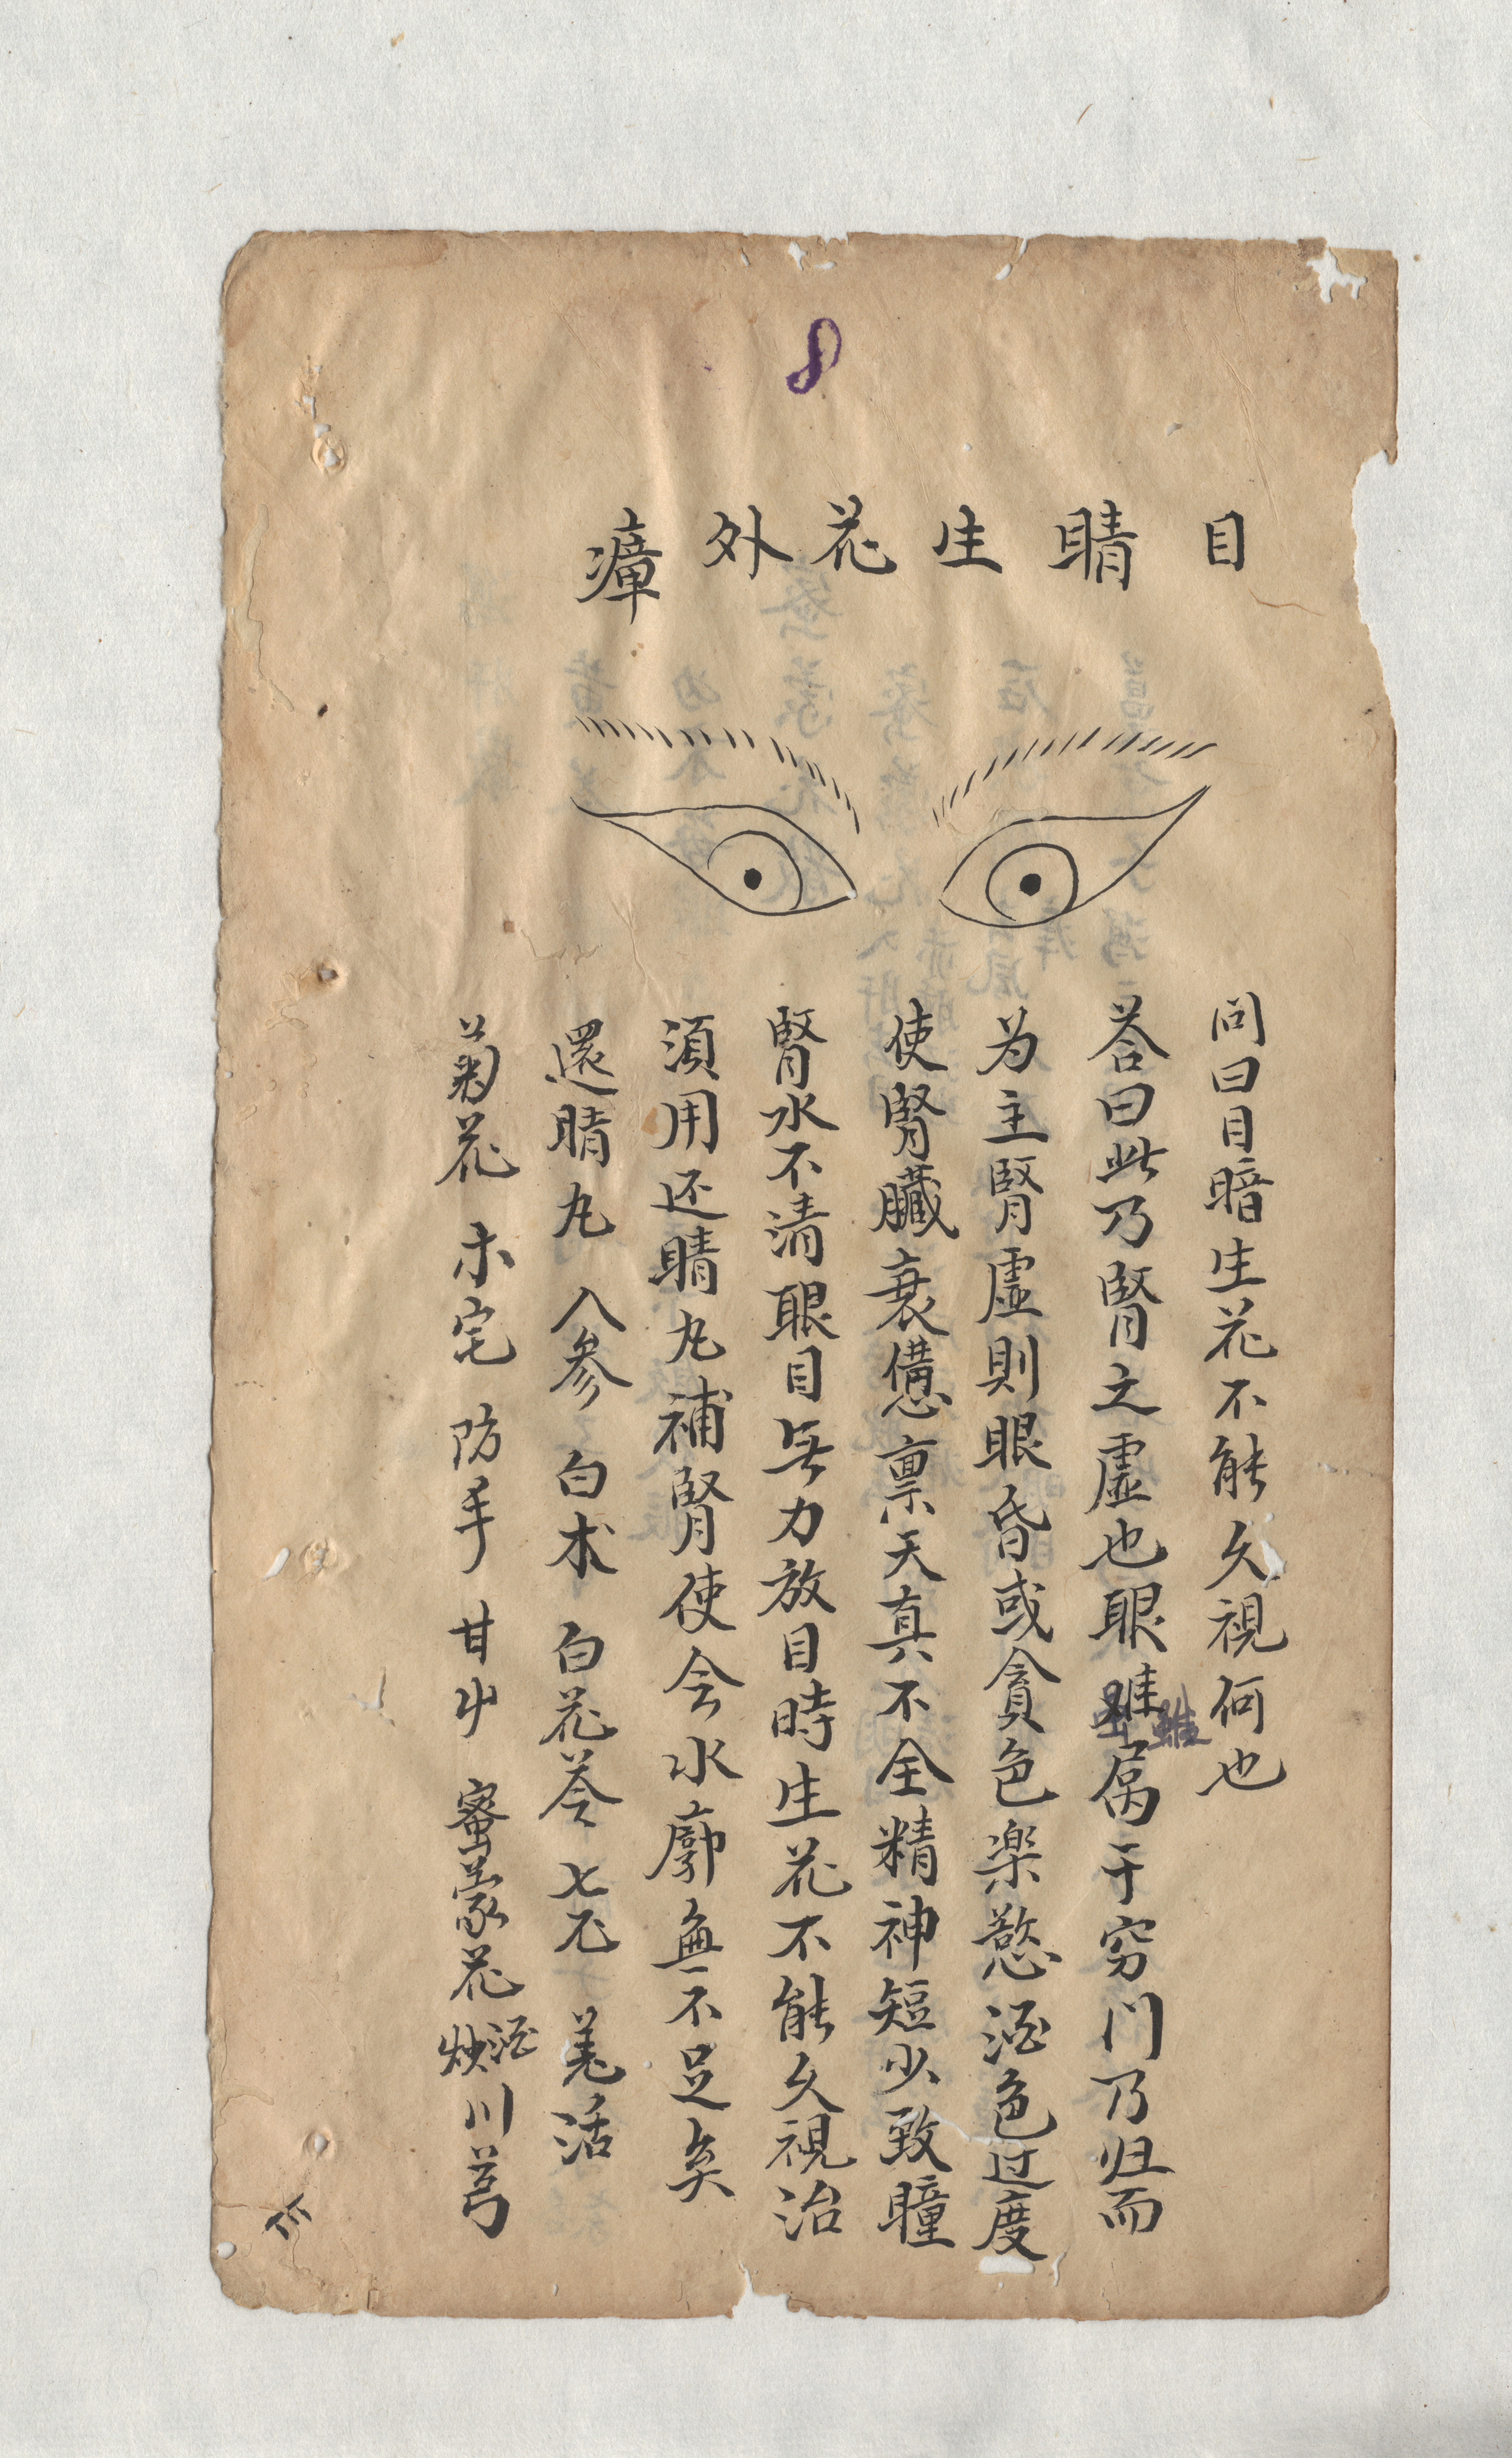 8
目睛生花外瘴
问曰目暗生花不能久視何也
荅曰此乃腎之虛也眼雖属于窍门乃归而
雖
为主腎虛則眼昏或貪色楽慾酒色过度
使腎臟衰憊禀天真不全精神短少致瞳
腎水不清眼目無力放目時生花不能久視治
須用还睛丸補腎使令水廓無不足矣
還睛丸 人参 白术 白茯苓 羌活
菊花 防 甘 蜜蒙花 酒炒 川芎